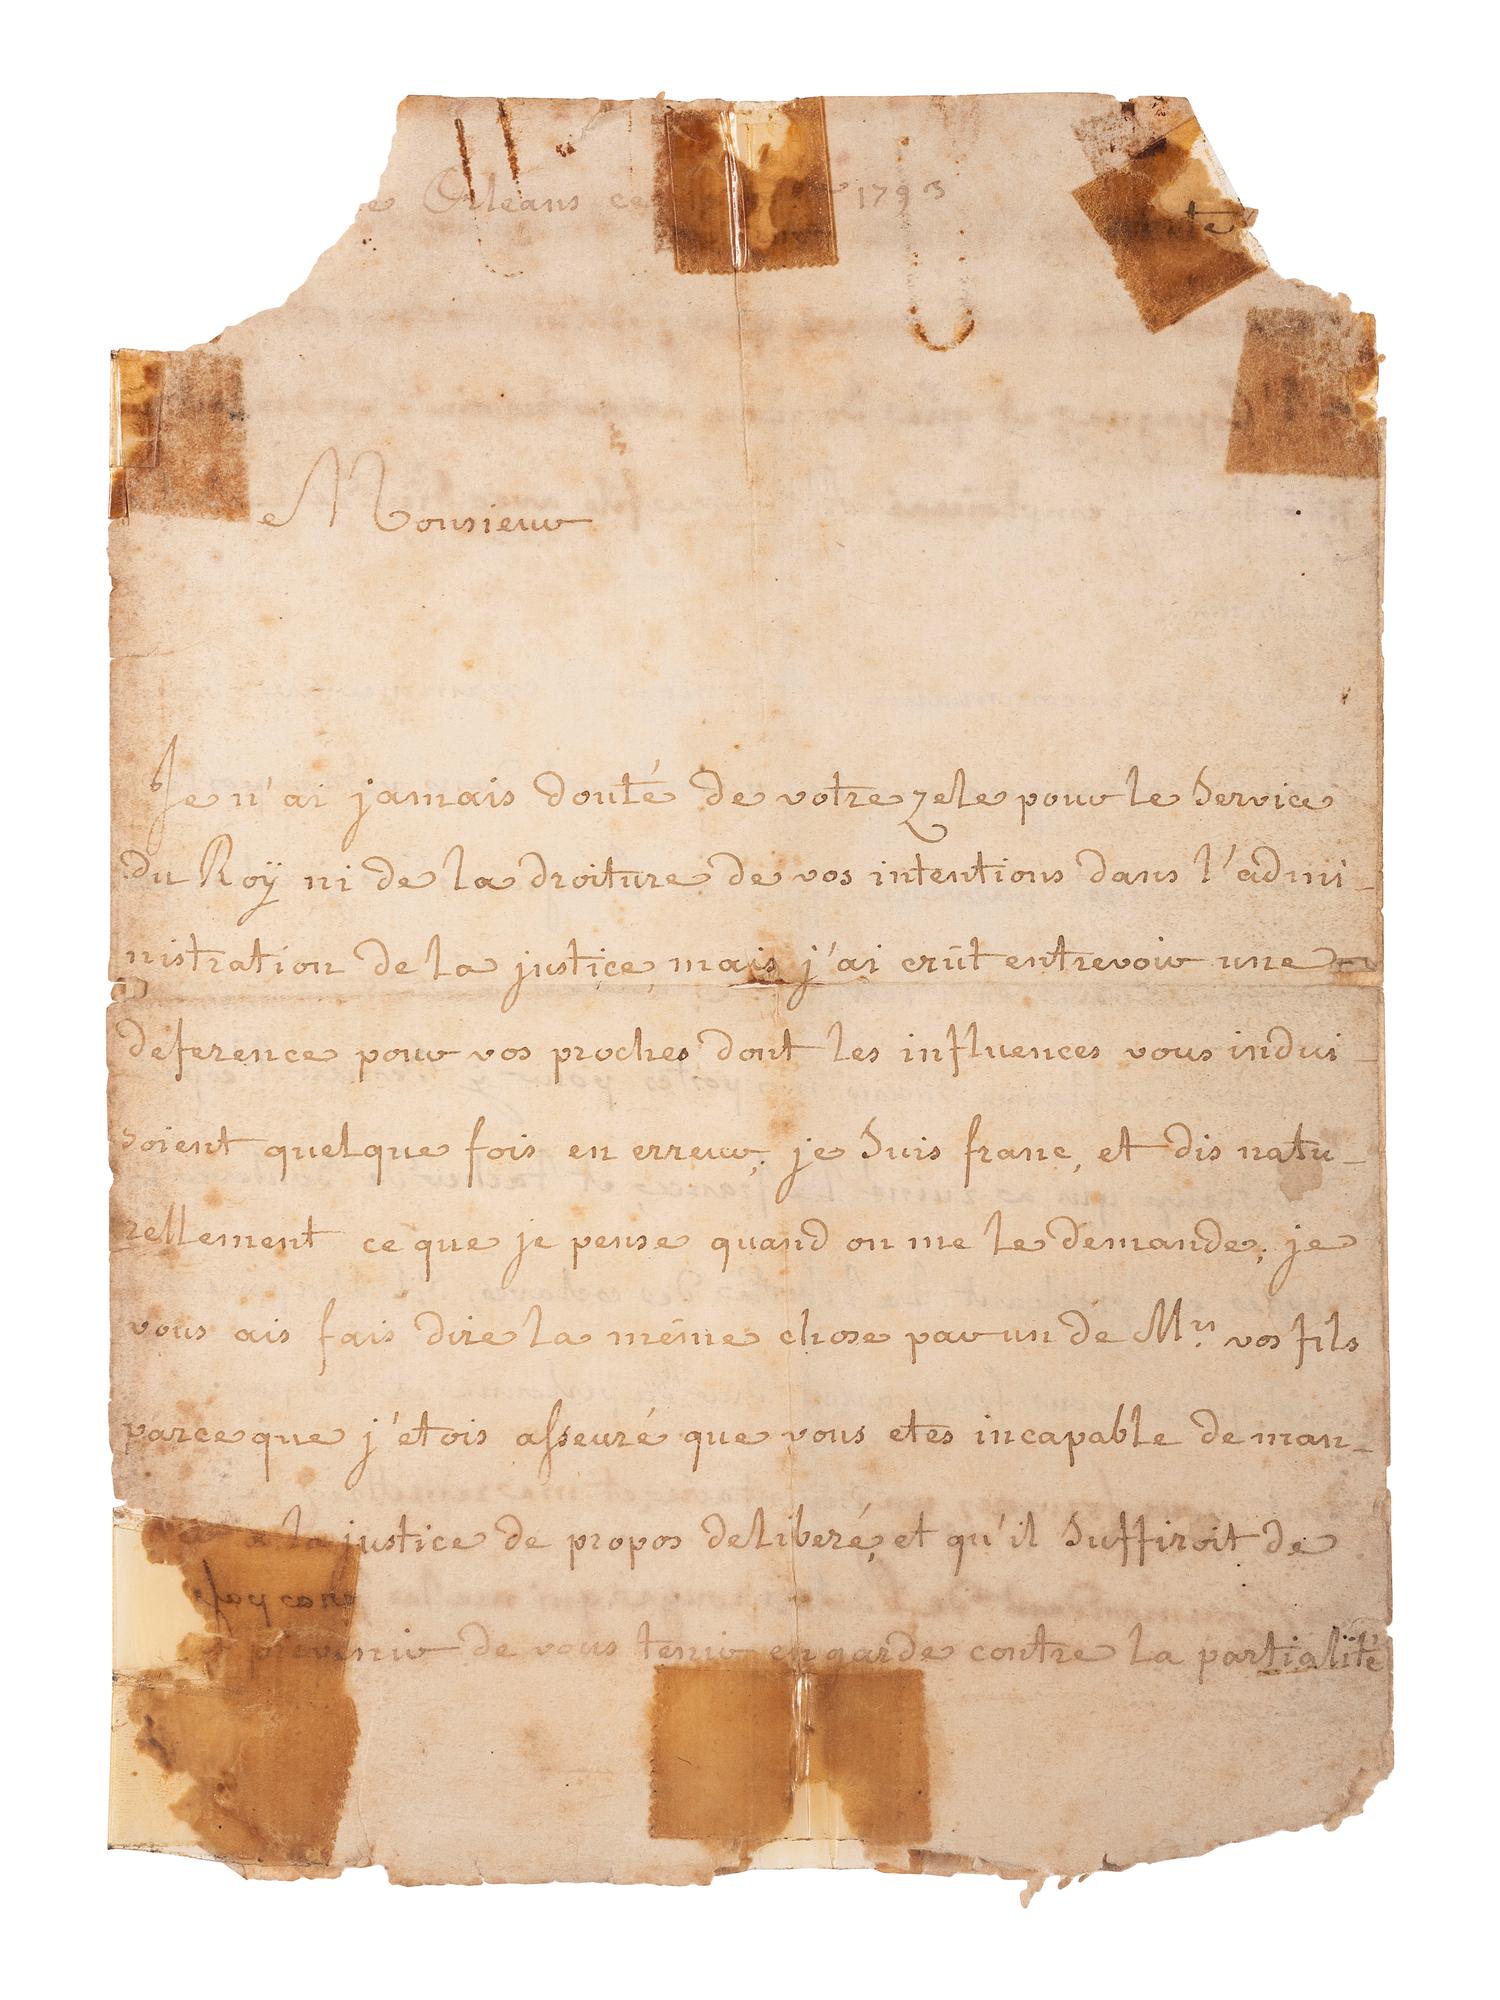 e Orleans ce 1793
Monsieur
Je n'ai jamais douté de votre zele pour le Service
du Roÿ ni de la droiture de vos intentions dans l'admi-
nistration de la justice, mais j'ai crût entrevoir une
deference pour vos proches dont les influences vous indui-
soient quelque fois en erreur; je Suis franc, et dis natu-
rellement ce que je pense quand on me le demande; je
vous ais fais dire la même chose par un de Mrs. vos fils
parce que j'étois asseuré que vous etes incapable de man-
à la justice de propos deliberé, et qu'il Suffiroit de
prevenir de vous tenir en garde contre la partialité